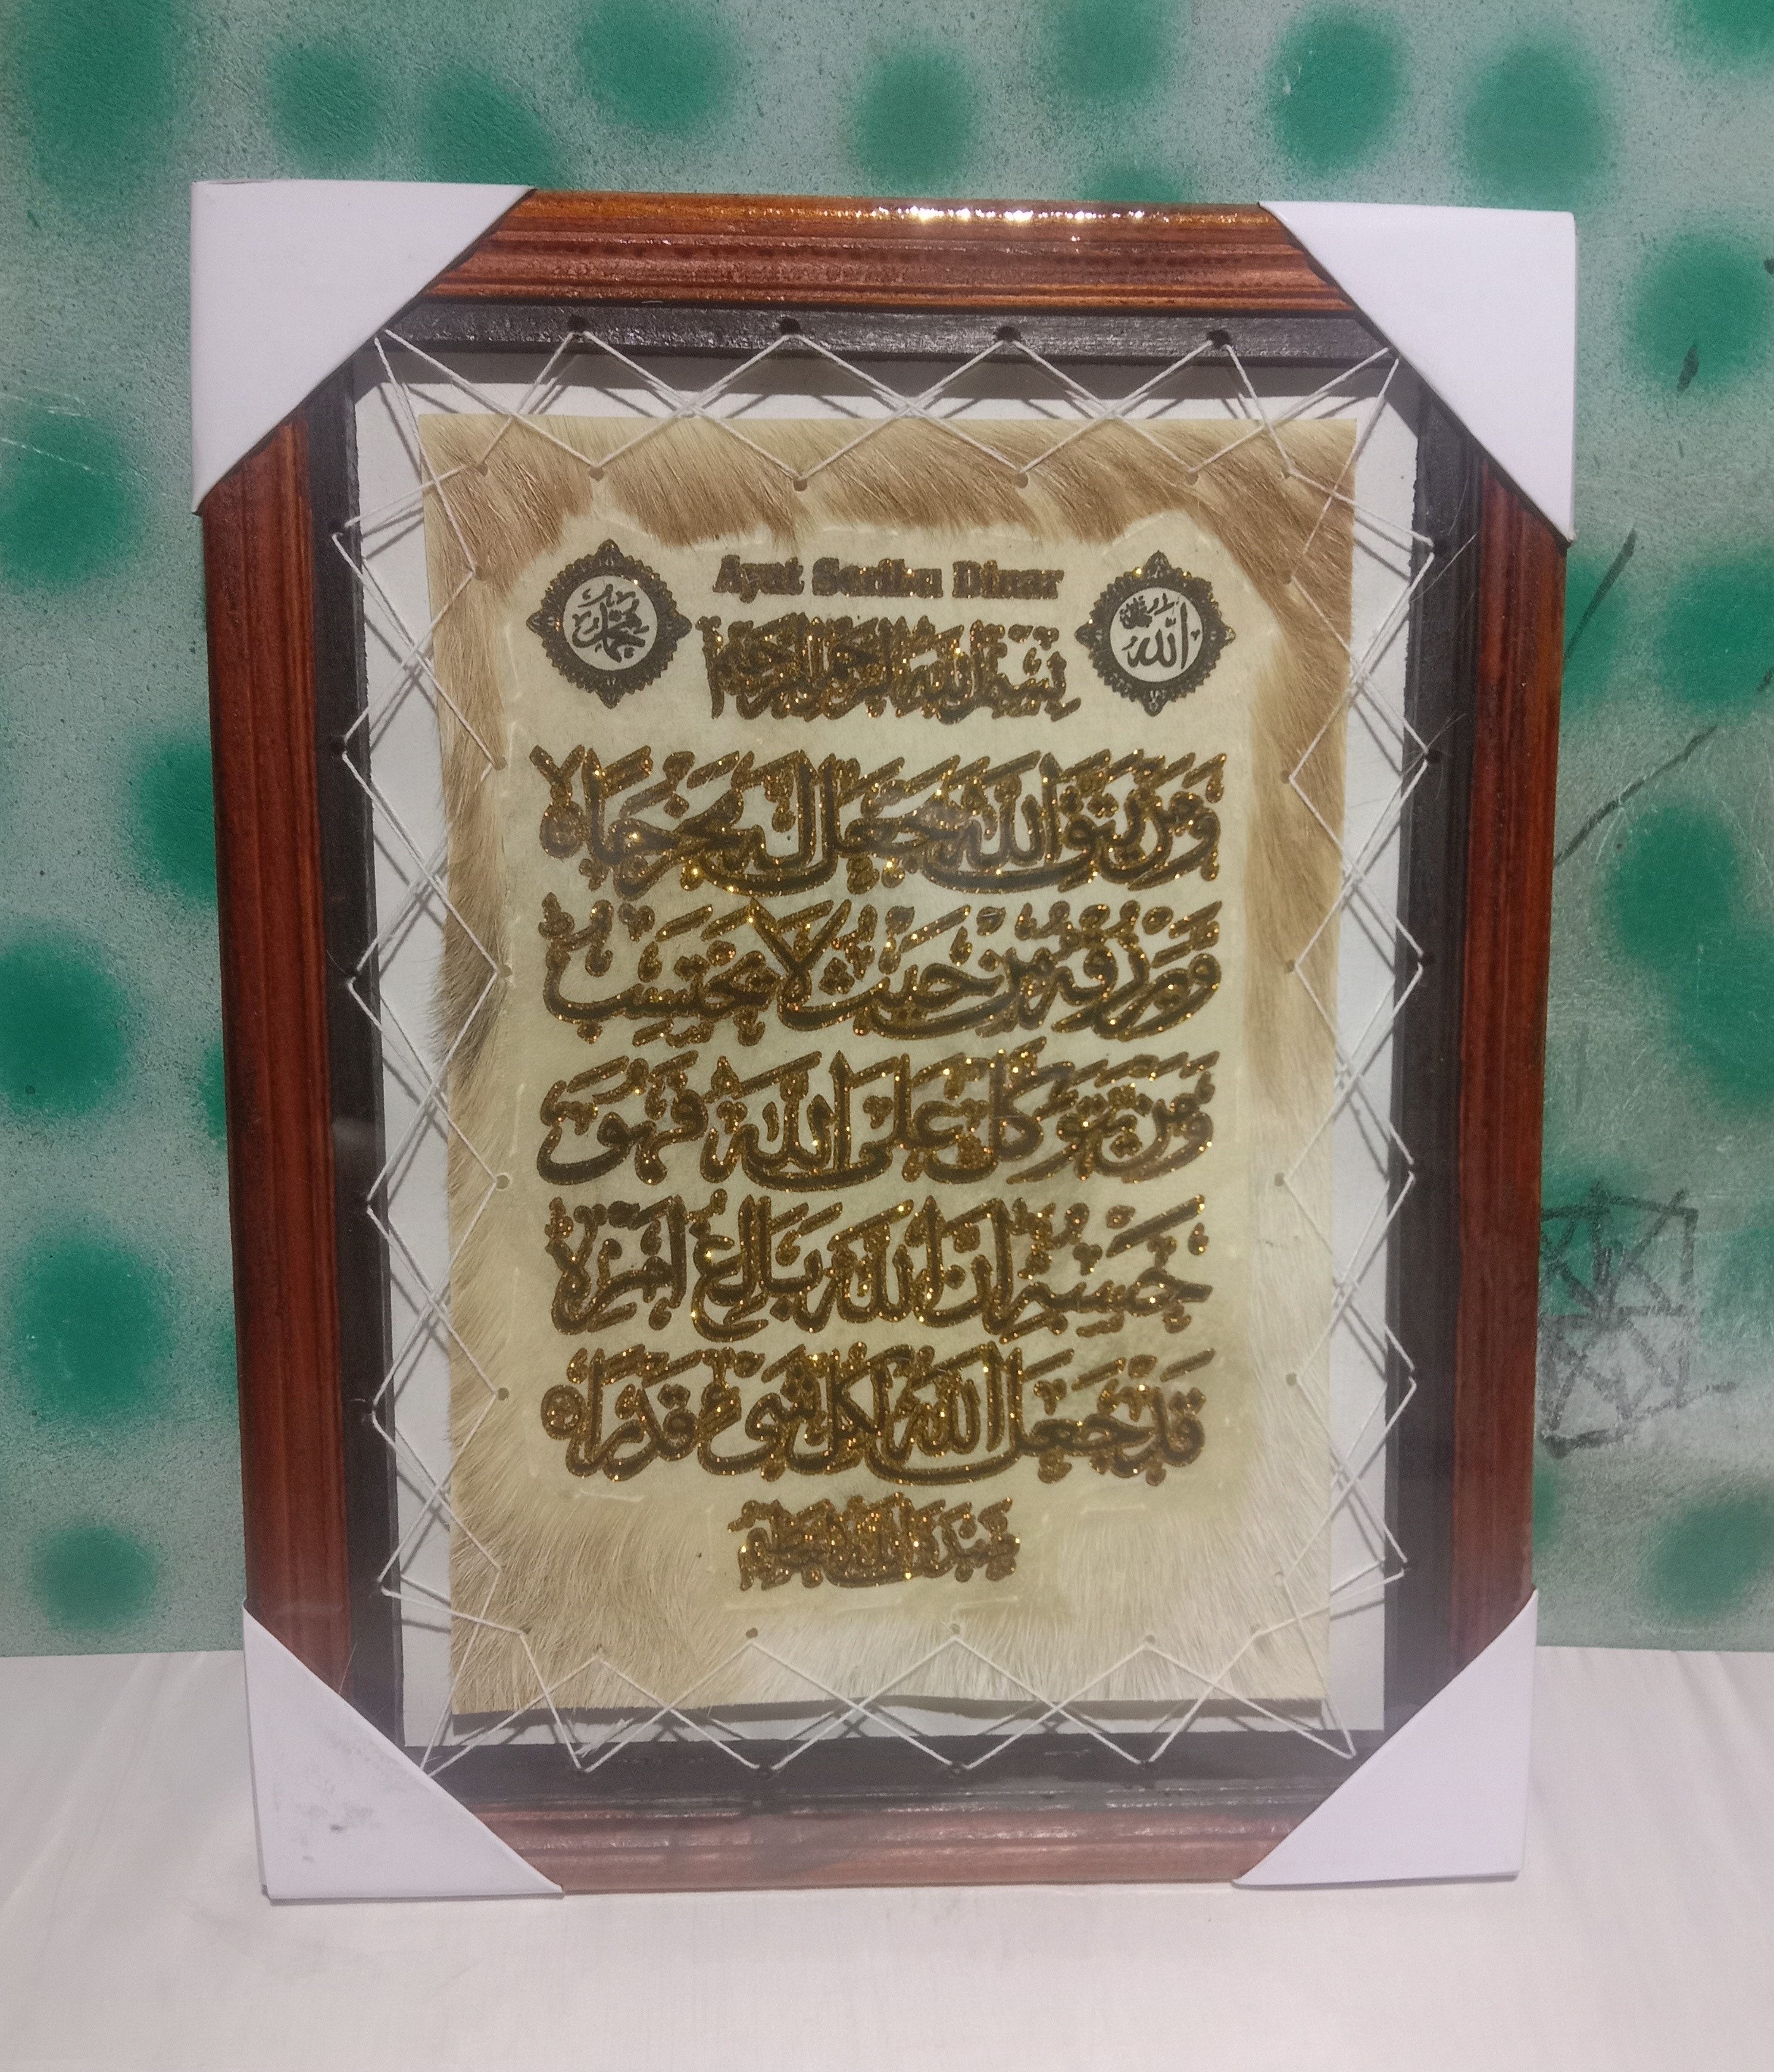 Ayat Seribu Dinar
محمد
الله
بِسْمِ اللَّهِ الرَّحْمٰنِ الرَّحِيْمِ
وَمَنْ يَتَّقِ اللَّهَ يَجْعَلْ لَهُ مَخْرَجًا ۙ
وَيَرْزُقْهُ مِنْ حَيْثُ لَا يَحْتَسِبُ ۗ
وَمَنْ يَتَوَكَّلْ عَلَى اللَّهِ فَهُوَ
حَسْبُهُ إِنَّ اللَّهَ بَالِغُ أَمْرِهِ ۗ
قَدْ جَعَلَ اللَّهُ لِكُلِّ شَيْءٍ قَدْرًا
صَدَقَ اللَّهُ الْعَظِيْمُ